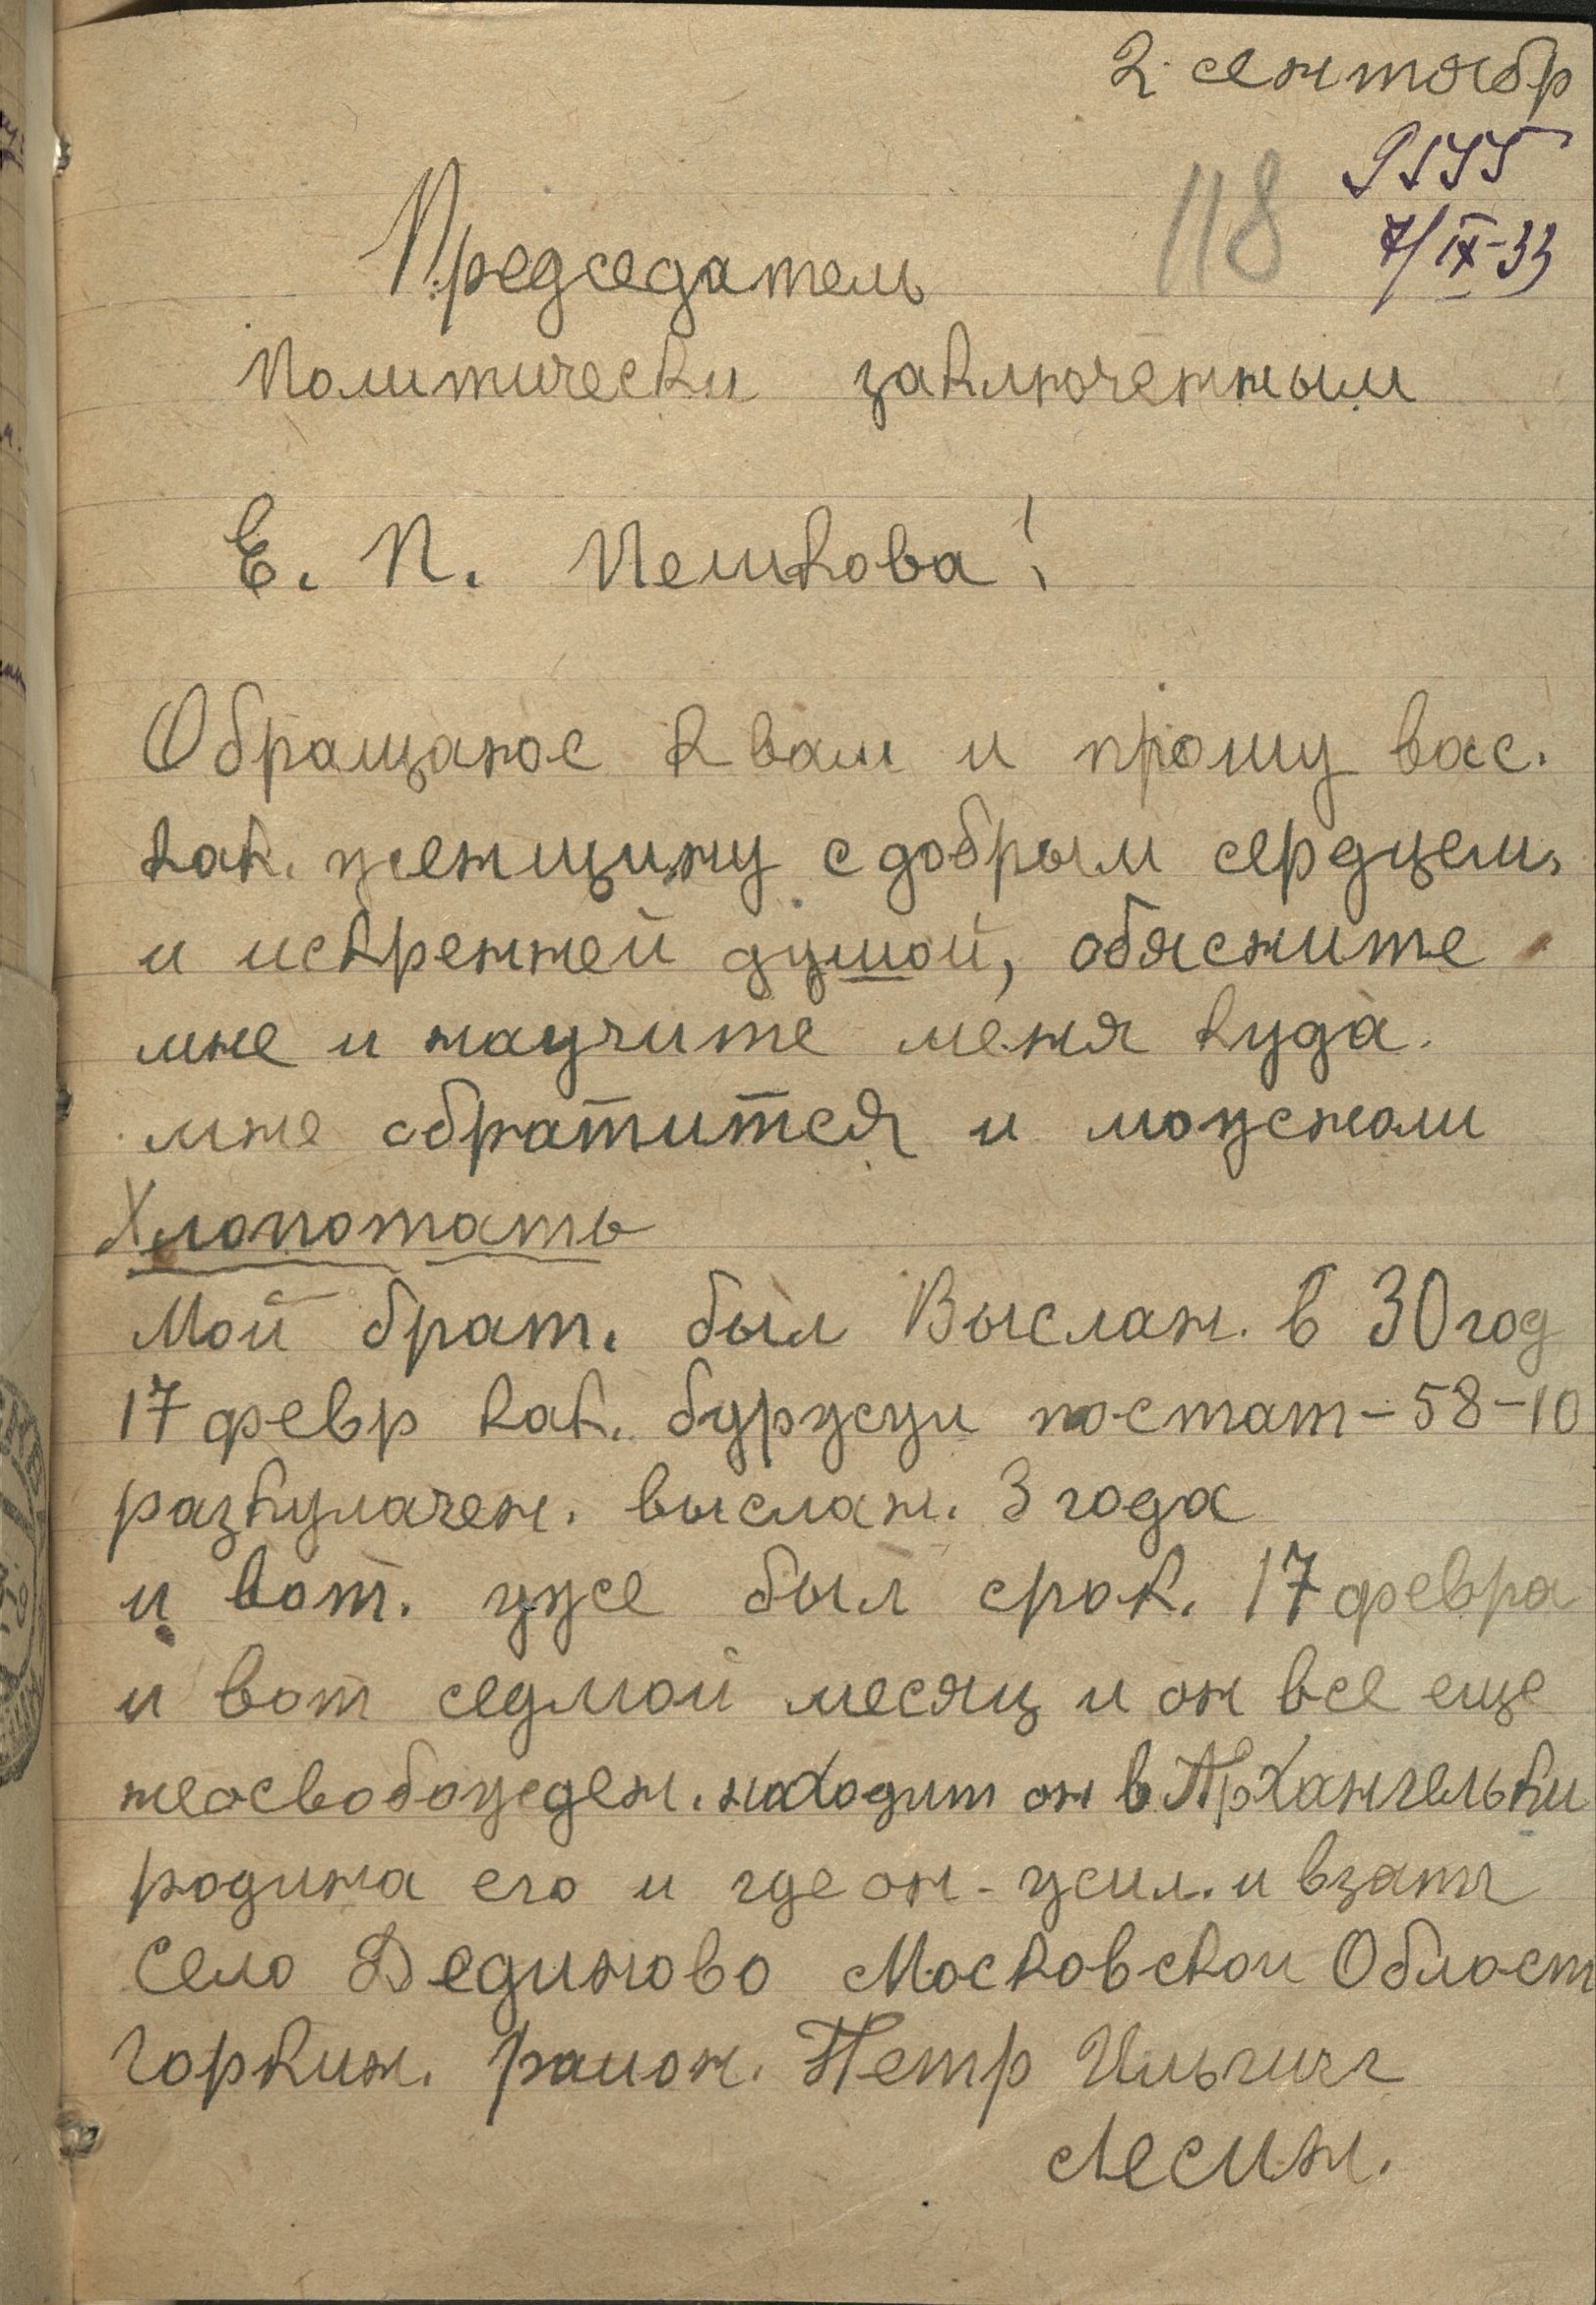 2 сентябр
118
7/IX-33
Председатель
Политически заключенным
Е. П. Пешкова!
Обращаюс к вам и прошу вас.
как. женщину с добрым сердцем,
и искренней душой, обясните
мне и научите меня куда.
мне обратится и можноли
Хлопотать
Мой брат. был Выслан. в 30 год
17 февр как. буржуи по стат-58-10
разкулачен. выслан. 3 года
и вот. уже был срок. 17 февра
и вот седмой месяц и он все еще
неосвобожден. находит он в Архангельки
родина его и где он- жил. и взатг
Село Дединово Московскои Област
Горкин. раион. Петр Ильичг
Лесин.